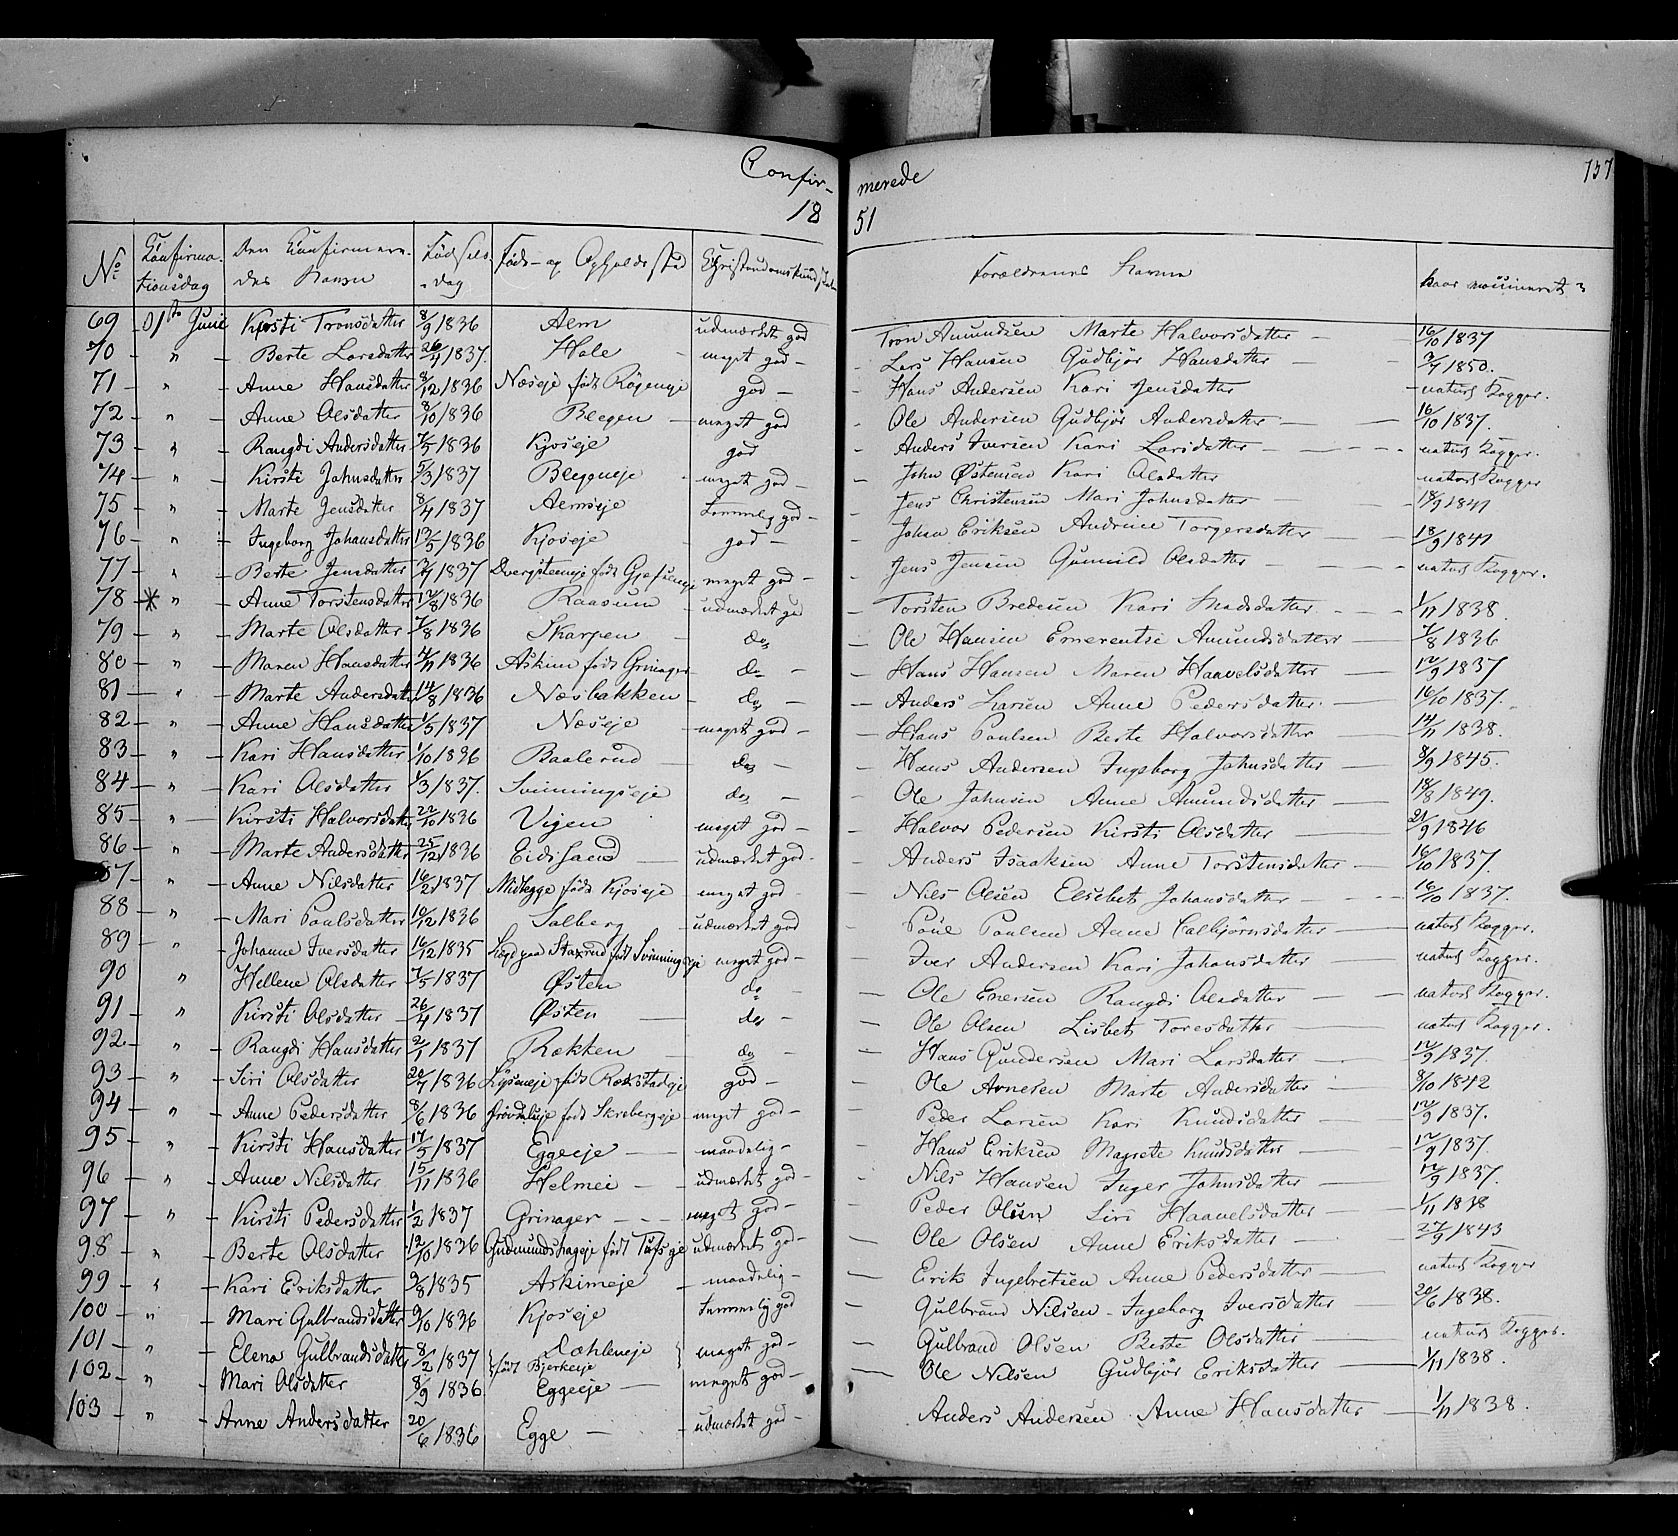 Confir-
merede
137
18
51
No Konfirmationsdag Den Konfirmerendes Navn Fødselsdag Føde- og Opholdssted Christendomskundskab Forældrenes Navne naar vaccineret
69 01ste Junie Kirsti Tronsdatter 8/9 1836 Alm udmærket god Tron Amundsen Marte Halvorsdatter 16/10 1837
70 " Berte Larsdatter 26/4 1837. Hole meget god Lars Hansen Gudbjør Hansdatter 3/7 1850.
71 " Anne Hansdatter 8/12 1836 Næseje født god Hans Andersen Kari Jensdatter naturl Kopper.
72 " Anne Olsdatter 8/10 1836 Bleegen meget god Ole Andersen Gudbjør Andersdatter 16/10 1837.
73 " Rangdi Andersdatter 7/5 1836 Kjoseje god Anders Iversen Kari Larsdatter naturl Kopper.
74 " Kirsti Johnsdatter 5/3 1837 meget god John Østensen Kari Olsdatter naturl Kopper
75 " Marte Jensdatter 8/4 1837 Almseje temmelig god Jens Christensen Mari Johnsdatter 18/9 1841
76 " Ingeborg Johansdatter 13/5 1836 Kjoseje god Johan Eriksen Andrine Torgersdatter 18/9 1841
77 " Berte Jensdatter 1837 født meget god Jens Jensen Gunnild Olsdatter naturl Kopper.
78 * " Anne Torstensdatter 12/8 1836 Raasum udmærket gd Torsten Bredesen Kari Madsdatter 1/11 1838.
79 " Marte Olsdatter 7/8 1836 Skarpen do Ole Hansen Emerentse Amundsdatter 7/8 1836
80 " Maren Hansdatter 4/11 1836 Askim født Grinager do Hans Hansen Maren Haavelsdatter 12/9 1837
81 " Marte Andersdatter 14/8 1836 Næsbakken do Anders Larsen Anne Pedersdatter 16/10 1837.
82 " Anne Hansdatter 1/5 1837 Næseje meget god Hans Paulsen Berte Halvorsdatter 14/11 1838.
83 " Kari Hansdatter 1/10 1836 Baalerud do Hans Andersen Ingeborg Johnsdatter 8/9 1845.
84 " Kari Olsdatter 1/3 1837. Svinningseje do Ole Johnsen Anne Amundsdatter 18/8 1849.
85 " Kirsti Halvorsdatter 22/10 1836 Vigen meget god Halvor Pedersen Kirsti Olsdatter 21/9 1846
86 " Marte Andersdatter 25/12 1836 Eidssand udmærket god Anders Isaaksen Anne Torstensdatter 16/10 1837.
87 " Anne Nilsdatter 16/2 1837 født Kjoseje meget god Nils Olsen Elsebet Johansdatter 16/10 1837.
88 " Mari Paulsdatter 10/12 1836 Solberg udmærket god Poul Paulsen Anne naturl Kopper.
89 " Johanne Iversdatter 16/12 1835 paa Staxrud født Svinningseje meget god Iver Andersen Kari Johansdatter naturl Kopper.
90 " Hellene Olsdatter 7/5 1837 Østen do Ole Enersen Rangdi Olsdatter naturl Kopper.
91 " Kirsti Olsdatter 26/4 1837 Østen do Ole Olsen Lisbet Toresdatter naturl Kopper.
92 " Rangdi Hansdatter 2/1 1837 Rækken do Hans Gundersen Mari Larsdatter 12/9 1837.
93 " Siri Olsdatter 20/7 1836 født god Ole Arnesen Marte Andersdatter 8/10 1842
94 " Anne Pedersdatter 8/6 1836 født Skrebergeje meget god Peder Larsen Kari Knudsdatter 12/9 1837.
95 " Kirsti Hansdatter 17/5 1837 Eggeeje maadelig Hans Eriksen Magrete Knudsdatter 12/9 1837.
96 " Anne Nilsdatter 15/11 1836 Helmei udmærket god Nils Hansen Inger Johnsdatter 12/9 1837.
97 " Kirsti Pedersdatter 1/2 1837 Grinager meget god Peder Olsen Siri Haavelsdatter 1/11 1838
98 " Berte Olsdatter 12/10 1836 Gudmundshageje født Tufseje udmærket god Ole Olsen Anne Eriksdatter 27/9 1843
99 " Kari Eriksdatter 9/8 1835 Askimeje maadelig Erik Ingebretsen Anne Pedersdatter naturl Kopper
100 " Mari Gulbrandsdatter 9/10 1836 Kjoseje temmelig god Gulbrand Nilsen Ingeborg Iversdatter 20/6 1838.
101 " Elena Gulbrandsdatter 8/2 1837 Dæhleneje født Bjerkeeje meget god Gulbrand Olsen Berte Olsdatter naturl Kopper.
102 " Mari Olsdatter 8/9 1836 Eggeeje meget god Ole Nilsen Gudbjør Eriksdatter 1/11 1838.
103 " Anne Andersdatter 20/6 1836 Egge udmærket god Anders Andersen Anne Hansdatter 1/11 1838.